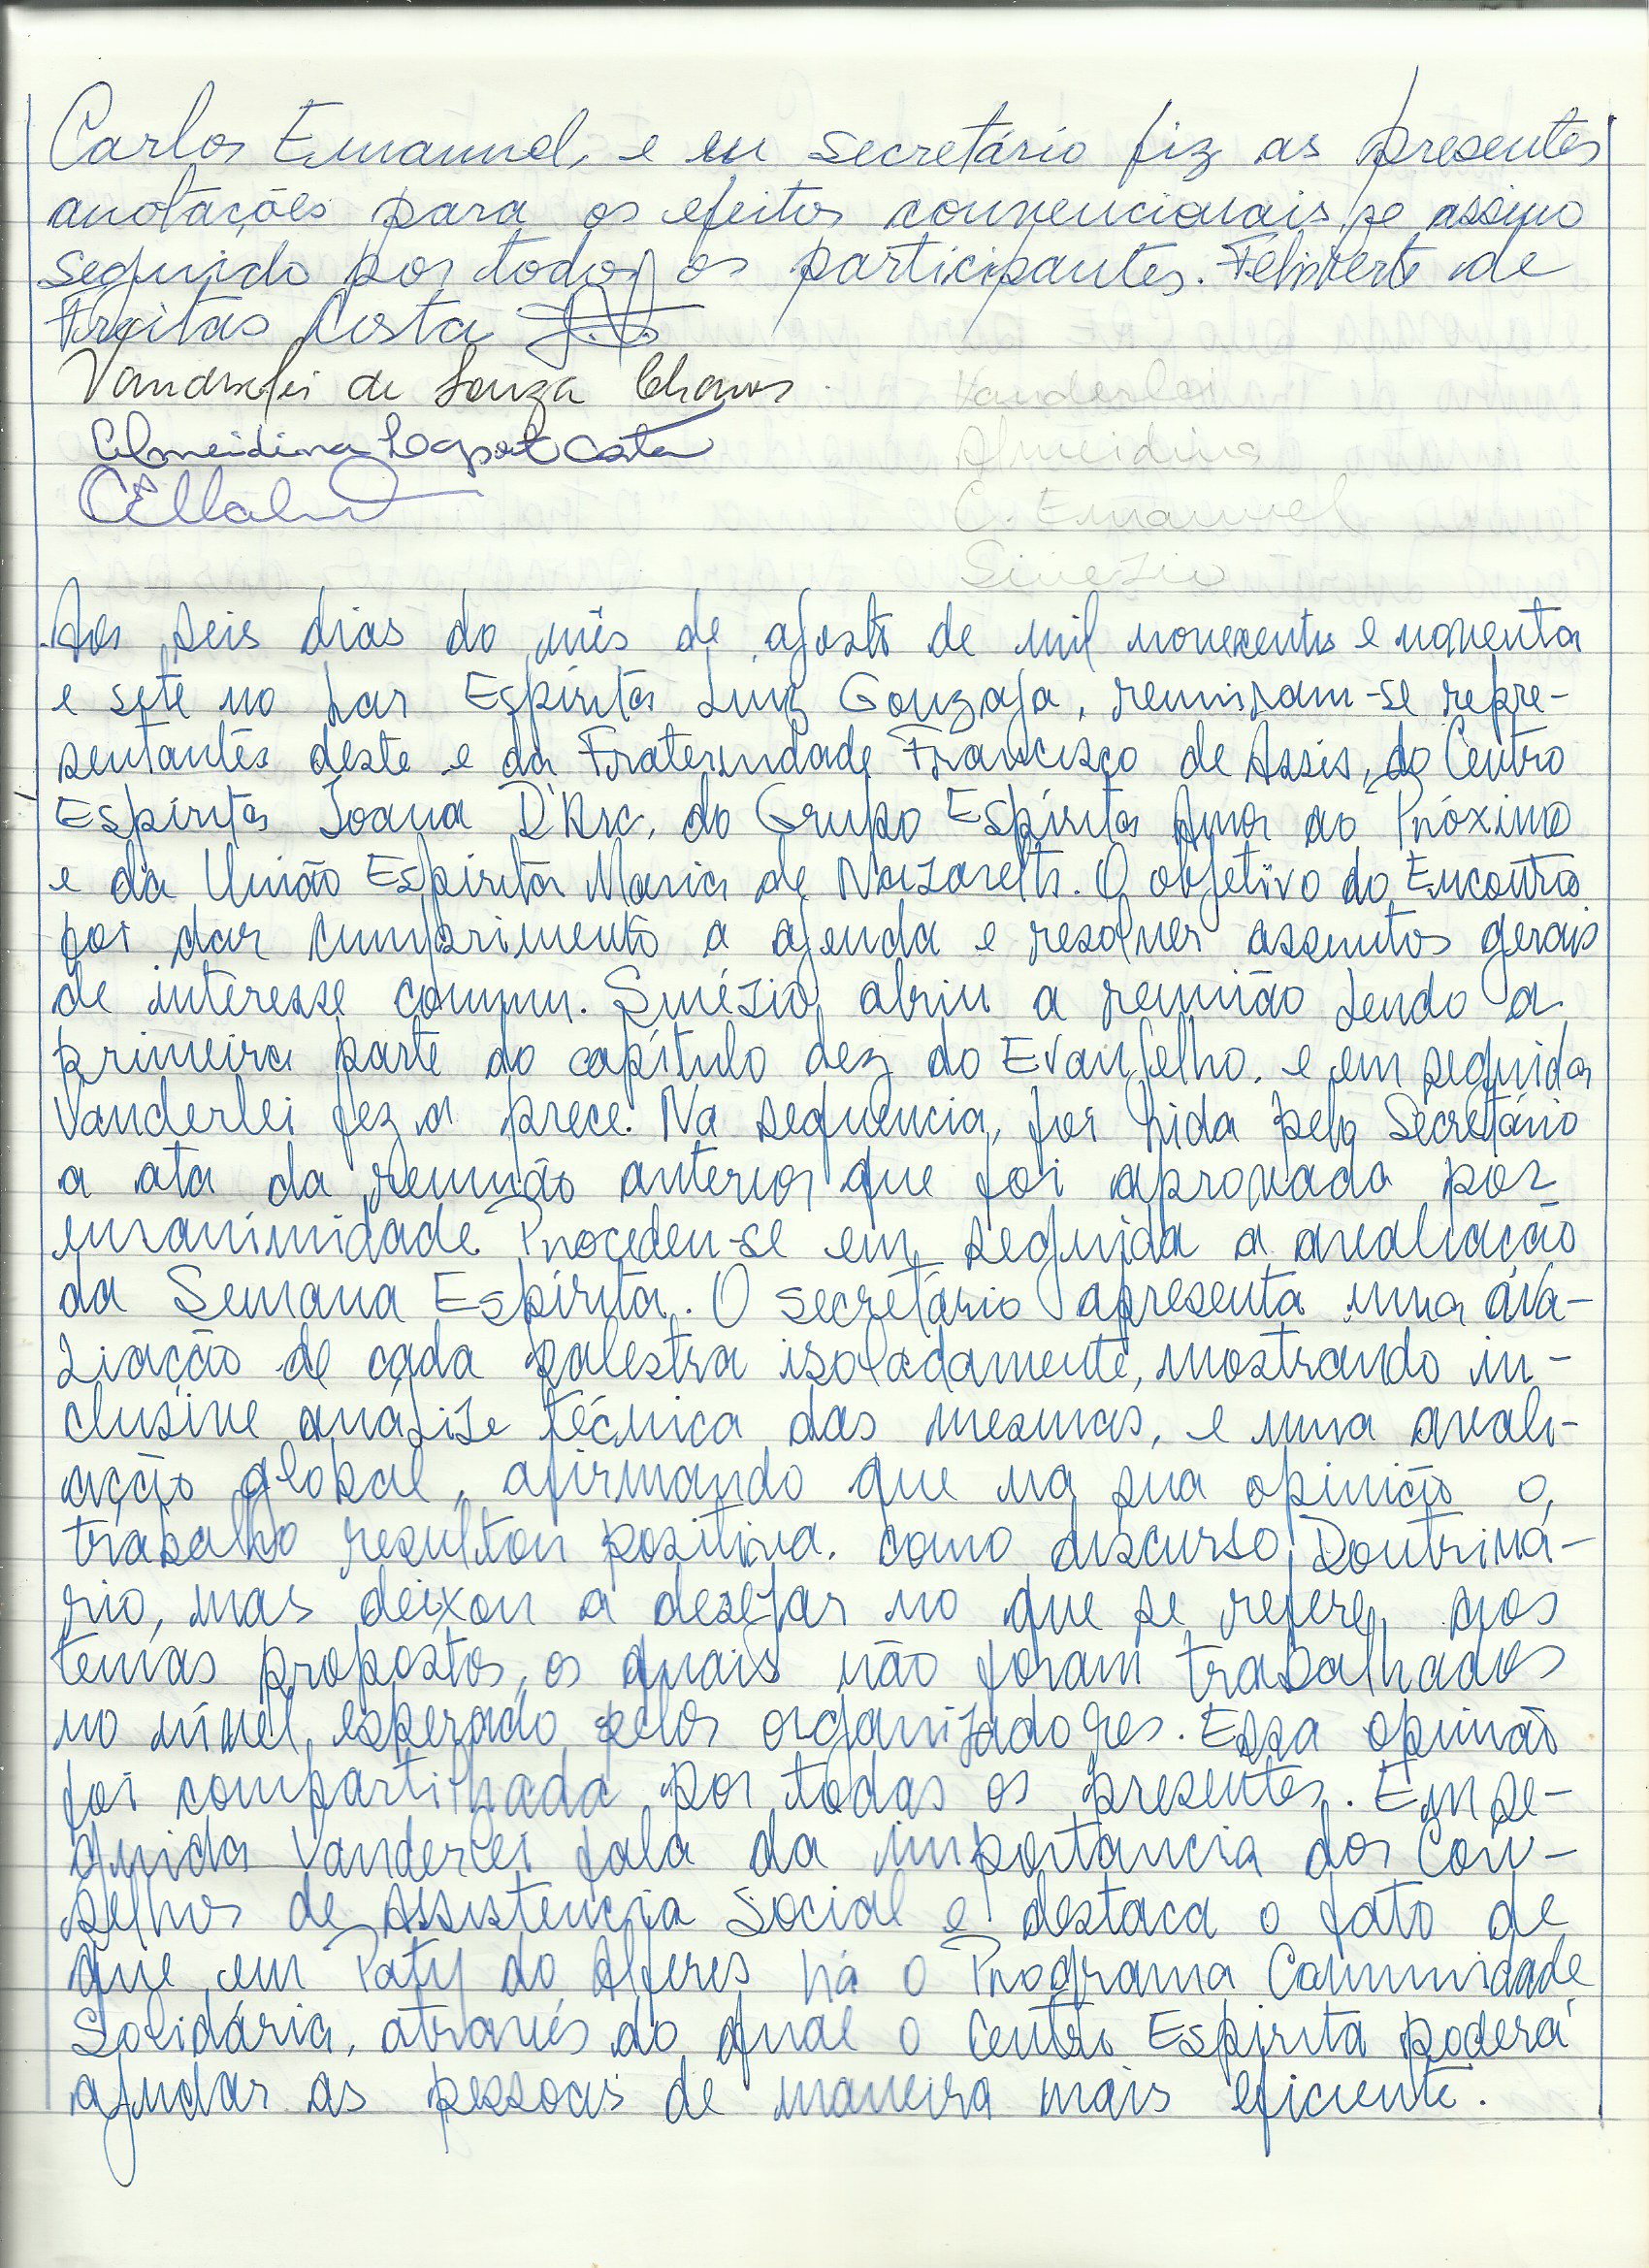 Carlos Emanuel, e eu secretário fiz as presentes
anotações para os efeitos convencionais, e assino
seguido por todos os participantes. Feliberto de
Freitas Costa
Vanderlei de Souza Chaves.
Vanderlei
Almeidina Costa
Almeidina
C. Emanuel
Sinézio
Aos seis dias do mês de agosto de mil novecentos e noventa
e sete no Lar Espírita Luiz Gonzaga, reuniram-se repre-
sentantes deste e da Fraternidade Francisco de Assis, do Centro
Espírita Joana D'Arc, do Grupo Espírita Amor ao Próximo
e da União Espírita Maria de Nazareth. O objetivo do Encontro
foi dar cumprimento a agenda e resolver assuntos gerais
de interesse comum. Sinézio abriu a reunião lendo a
primeira parte do capítulo dez do Evangelho, e em seguida
Vanderlei fez a prece. Na sequência, foi lida pelo Secretário
a ata da reunião anterior que foi aprovada por
unanimidade. Procedeu-se em seguida a avaliação
da Semana Espírita. O secretário apresenta uma ava-
liação de cada palestra isoladamente, mostrando in-
clusive análise técnica das mesmas, e uma avali-
ação global, afirmando que na sua opinião o
trabalho resultou positiva. como discurso Doutriná-
rio, mas deixou a desejar no que se refere aos
temas propostos, os quais não foram trabalhados
no nível esperado pelos organizadores. Essa opinião
foi compartilhada por todos os presentes. Em se-
guida Vanderlei fala da importancia dos Con-
selhos de Assistencia Social e destaca o fato de
que em Paty do Alferes há o Programa Comunidade
Solidária, através do qual o Centro Espírita poderá
ajudar as pessoas de maneira mais eficiente.